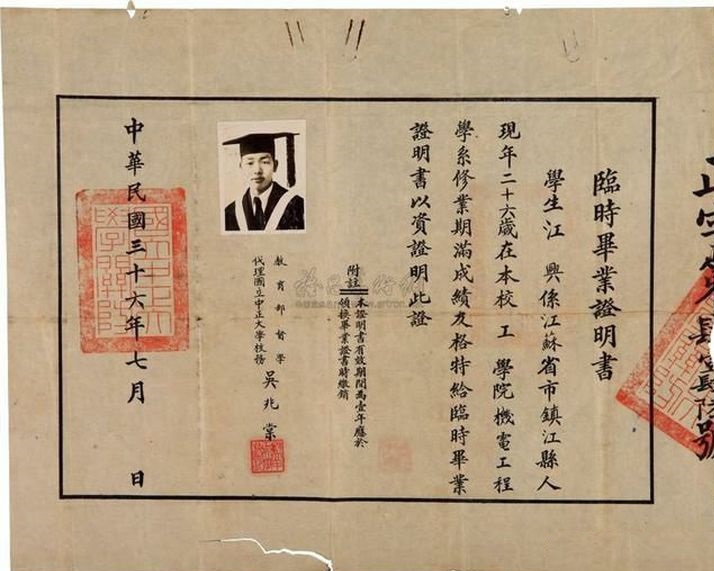 臨時畢業證明書
學生江 興係江蘇省市鎮江縣人
現年二十六歲在本校 工 學院機電工程
學系修業期滿成績及格特給臨時畢業
證明書以資證明此證
附註 本證明書有效期間為壹年應於
領換畢業證書時繳銷
教育部督學
代理國立中正大學校務 吳兆棠
中華民國三十六年七月 日
號